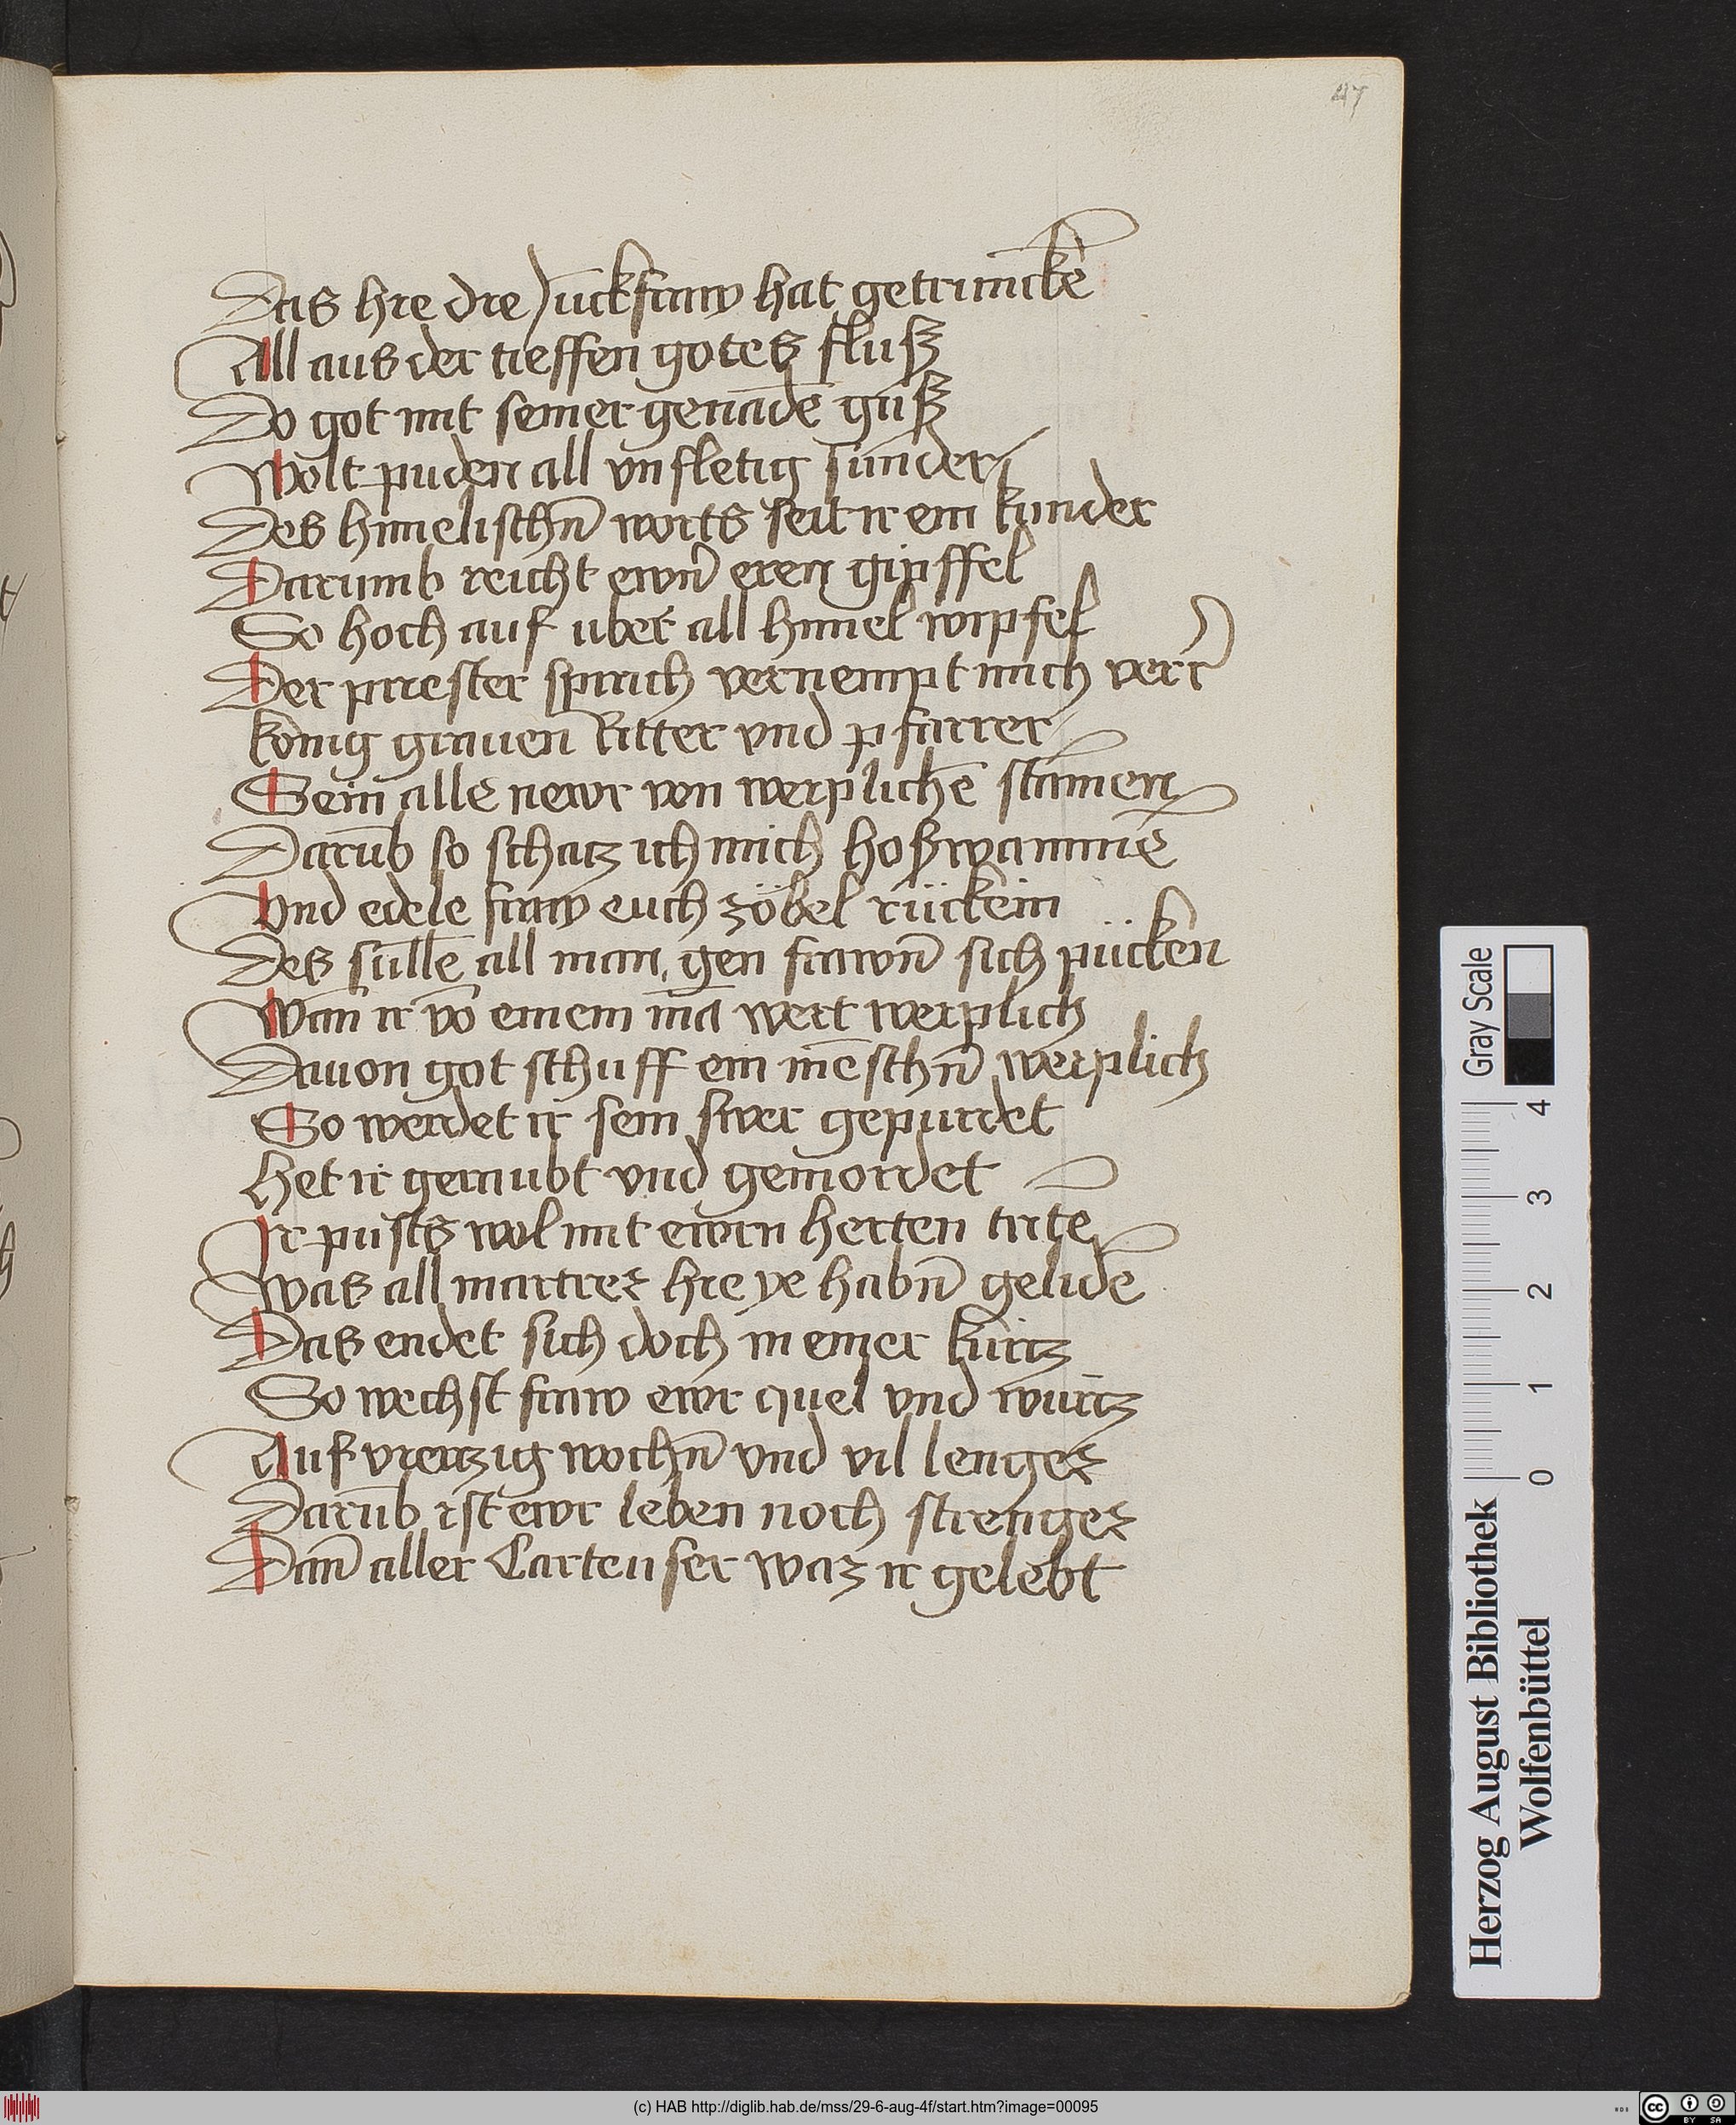 47
Das hie die Juckfraw hat getrunckē
All aus der tieffen gotes fluß
Do got mit seiner genadē guß
Wolt puden all vnfletig sunder
Des himelischn̄ worts seit ir ein kunder
Darumb reicht ewrn̄ eren gipffel
So hoch auf uber all himel wipfel
Der priester sprach vernempt mich verr
konig grauen Ritter vnd pfarrer
Sein alle newr von weyplichē stamen
Darūb so schatz ich mich hoßwammē
Vnd edele fraw euch zöbel rückein
Des sullē all man gen frawn̄ sich pücken
Wan̄ ir vō einem mā wert weyplich
Dauon got schuff ein mēschn̄ weyplich
So werdet ir sein swer gepurdet
Het ir geraubt vnd gemordet
Ir pusts wol mit ewrn herten trite
Was all martrer hie ye habn̄ gelidē
Das endet sich doch in einer kurtz
So wechst fraw ewr quel vnd wurtz
Auf viertzig wochn̄ vnd vil lenger
Darūb ist ewr leben noch strenger
Dan̄ aller Cartenser waz ir gelebt
Gray Scale
4 3 2 1 0
Herzog August Bibliothek
Wolfenbüttel
(c) HAB http://diglib.hab.de/mss/29-6-aug-4f/start.htm?image=00095